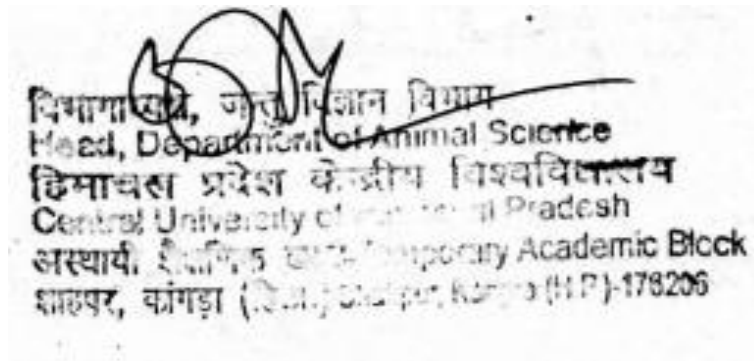 विभागाध्यक्ष, जन्तु विज्ञान विभाग
Head, Department of Animal Science
हिमाचल प्रदेश केन्द्रीय विश्वविद्यालय
Central University of Pradesh
अस्थायी शैक्षणिक Temporary Academic Block
शाहपुर, कांगड़ा Shahpur, Kangra (H.P.)-176206